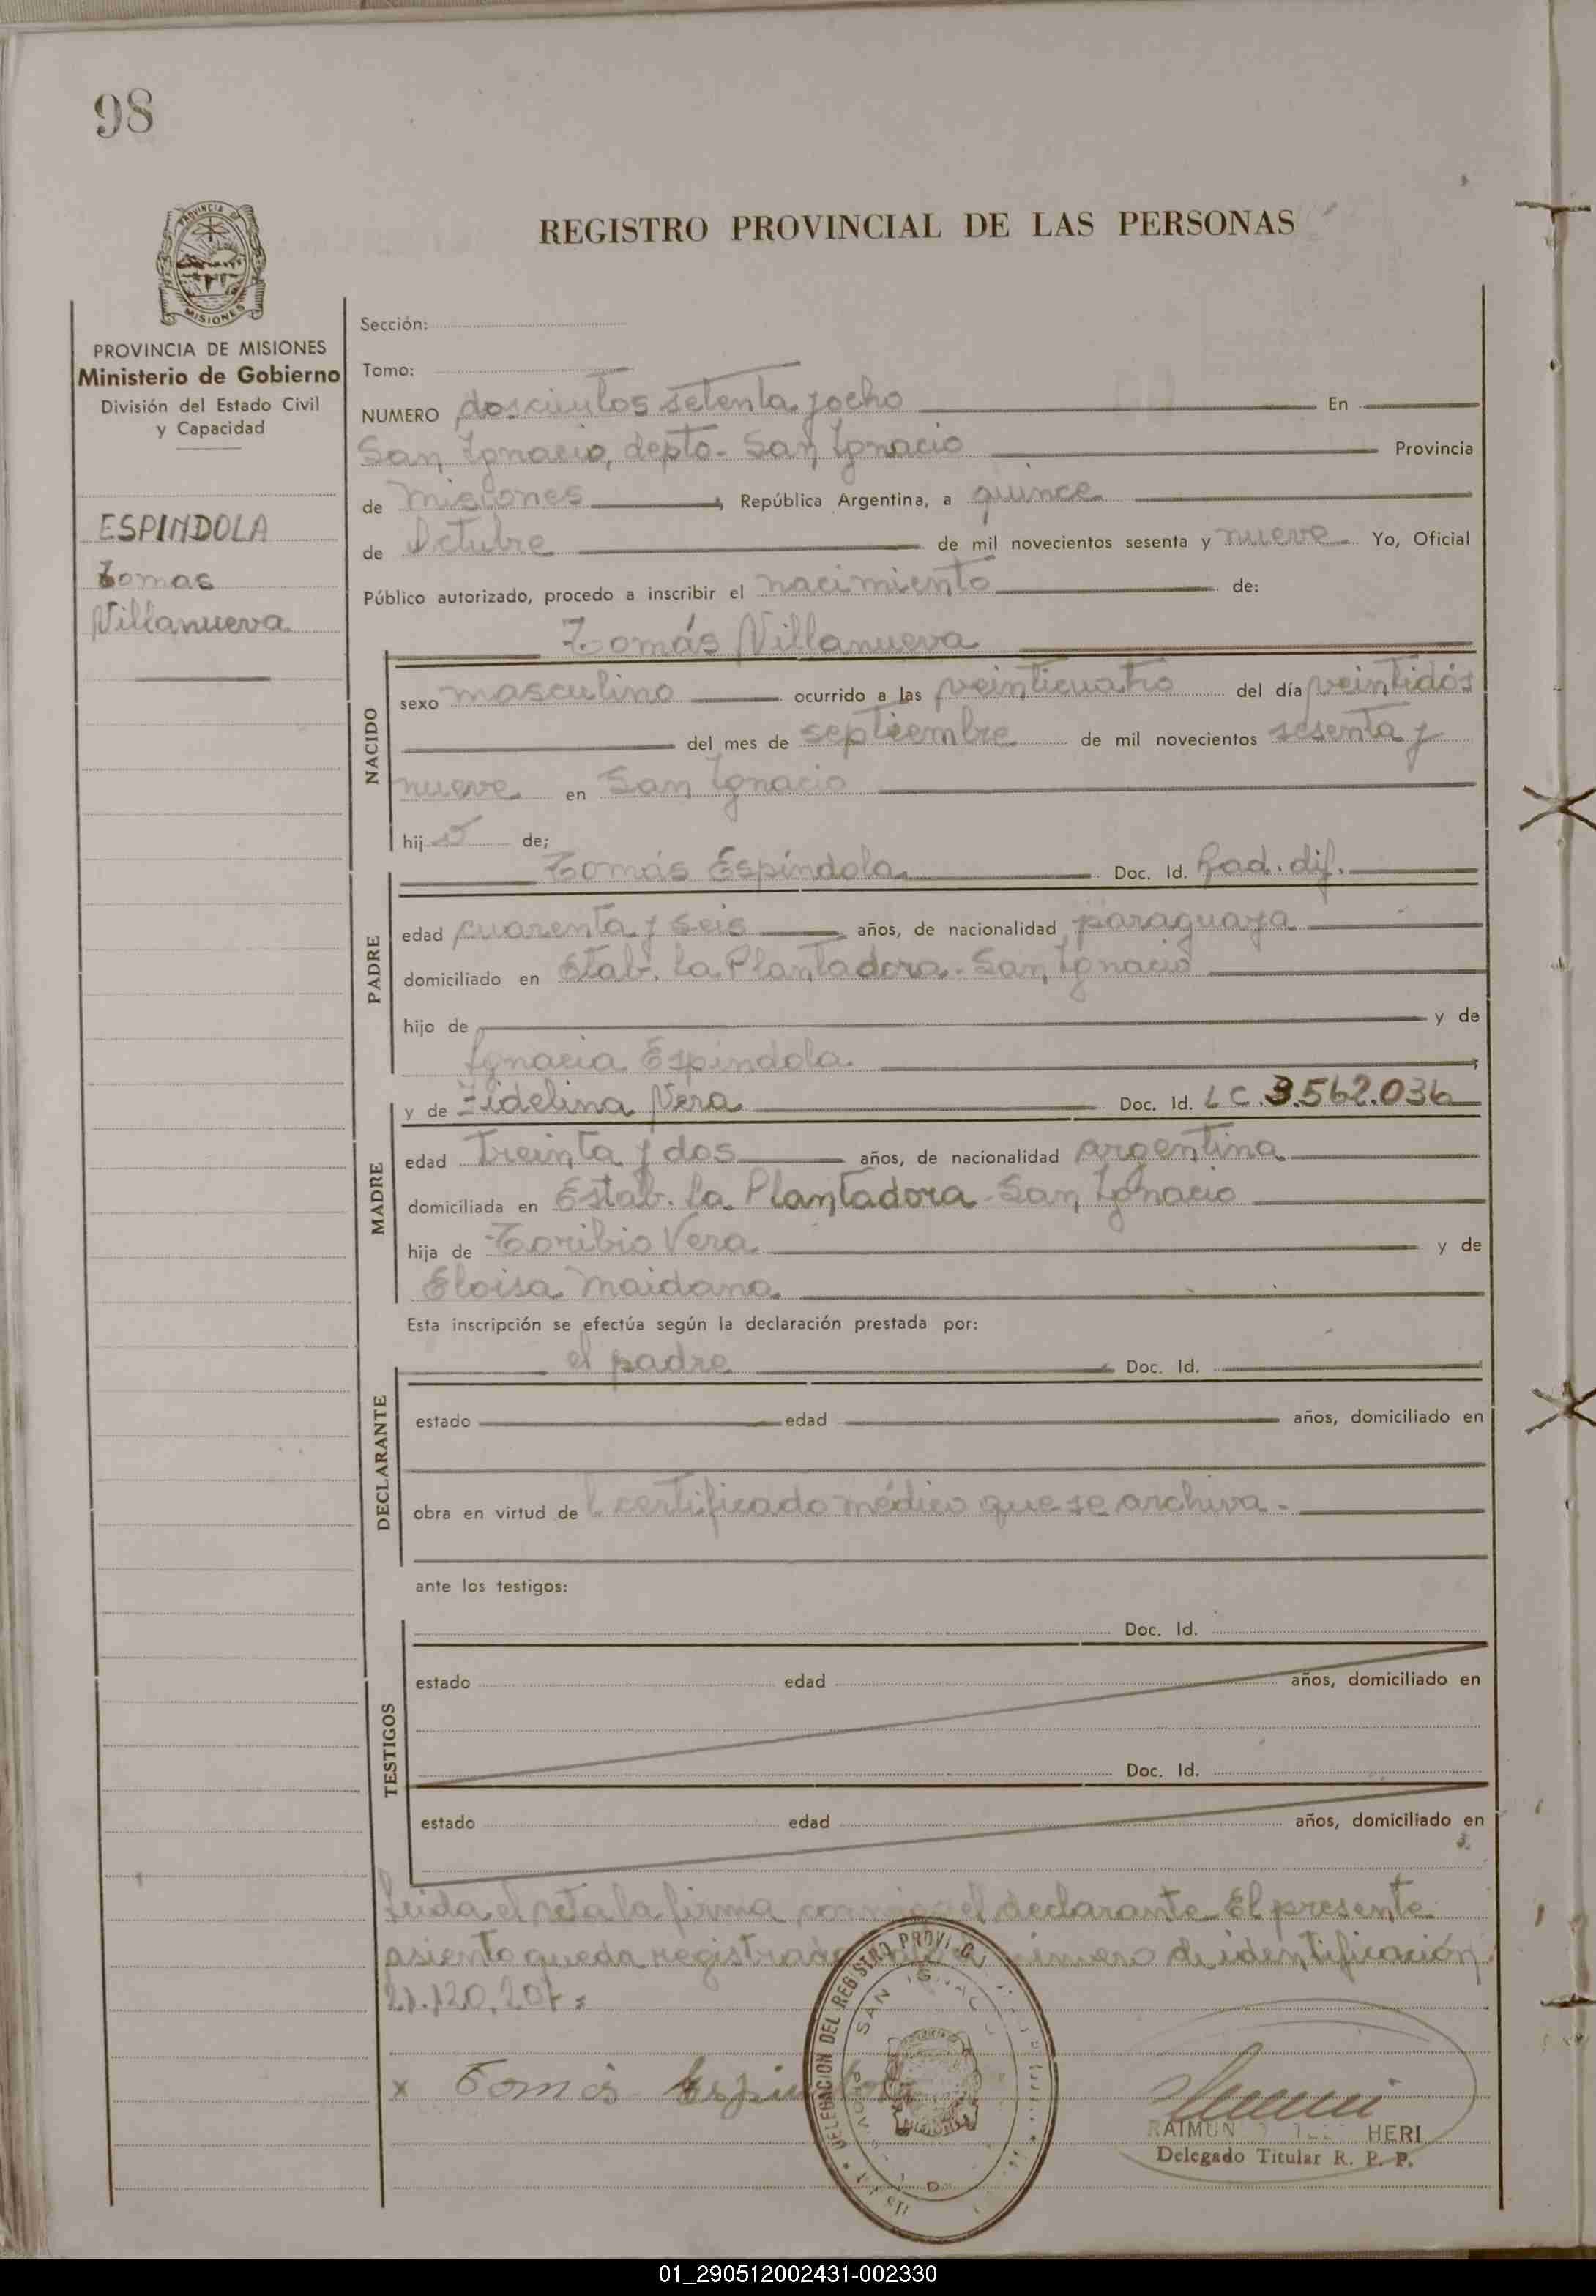 98
PROVINCIA DE
MISIONES
REGISTRO PROVINCIAL DE LAS PERSONAS
PROVINCIA DE MISIONES
Ministerio de Gobierno
División del Estado Civil
y Capacidad
ESPINDOLA
Tomas
Villanueva
Sección:
Tomo:
NUMERO doscientos setenta y ocho En
San Ignacio, depto. San Ignacio Provincia
de Misiones, República Argentina, a quince
de Octubre de mil novecientos sesenta y nueve Yo, Oficial
Público autorizado, procedo a inscribir el nacimiento de:
Tomás Villanueva
NACIDO
sexo masculino ocurrido a las veinticuatro del día veintidós
del mes de septiembre de mil novecientos sesenta y
nueve en San Ignacio
hijo de;
PADRE
Tomás Espíndola Doc. Id. Rad. dif.
edad cuarenta y seis años, de nacionalidad paraguaya
domiciliado en Estab. La Plantadora - San Ignacio
hijo de y de
Ignacia Espíndola ;
MADRE
y de Fidelina Vera Doc. Id. LC. 3.562.036
edad treinta y dos años, de nacionalidad argentina
domiciliada en Estab. La Plantadora - San Ignacio
hija de Toribio Vera y de
Eloisa Maidana
Esta inscripción se efectúa según la declaración prestada por:
DECLARANTE
el padre Doc. Id.
estado edad años, domiciliado en
obra en virtud del certificado médico que se archiva -
ante los testigos:
TESTIGOS
Doc. Id.
estado edad años, domiciliado en
Doc. Id.
estado edad años, domiciliado en
Leida el acta la firma conmigo el declarante El presente
asiento queda registrado número de identificación
21.120.207 =
x Tomás Espindola
DELEGACION DEL REGISTRO PROV
SAN IGNAC
HERI
Delegado Titular R. P. P.
01_290512002431-002330